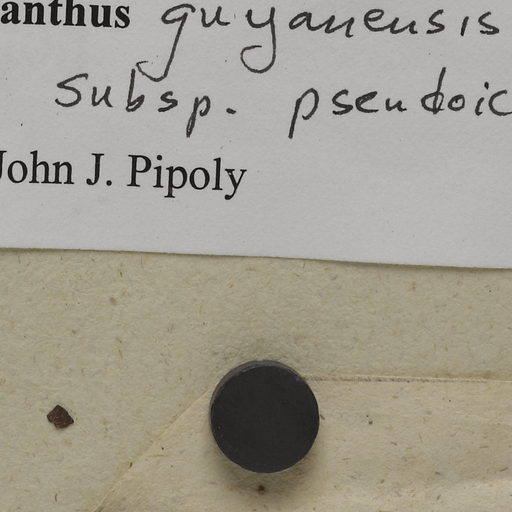 anthus guyanensis
subsp. pseudoic
John J. Pipoly